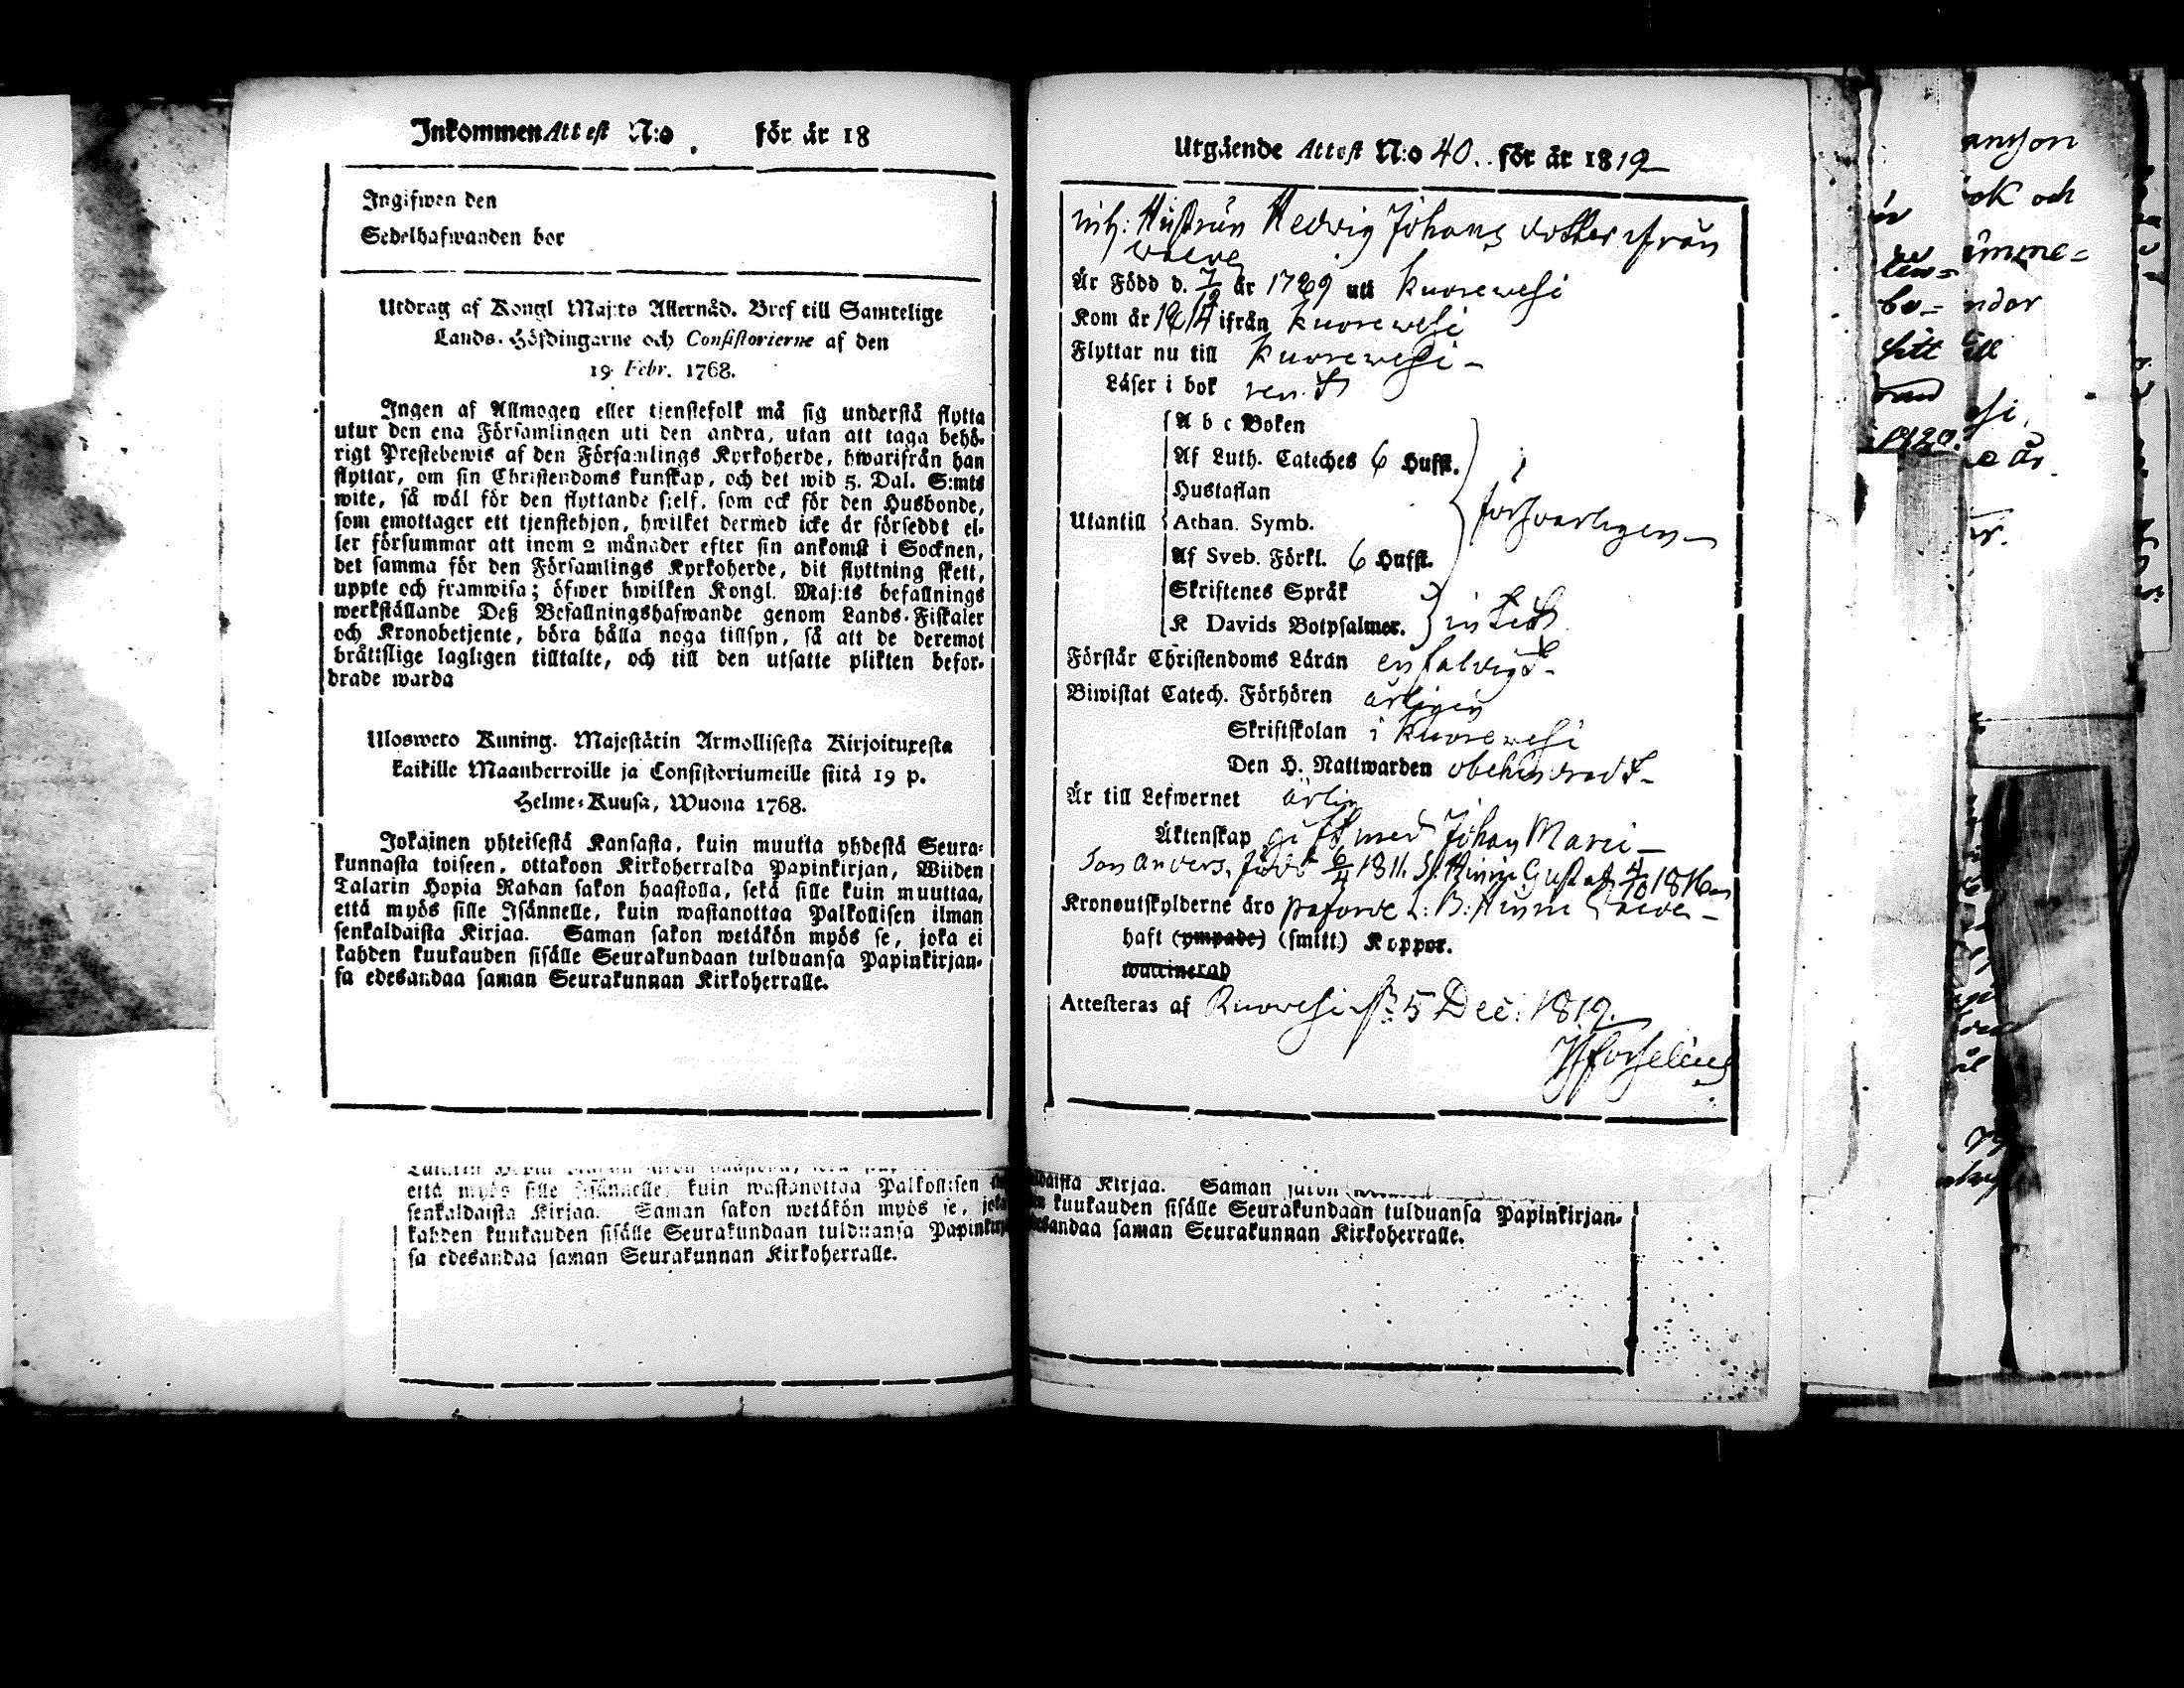 Inkommen Attest N:o för år 18
Ingifwen den
Sedelhafwanden bor
Utdrag af Kongl Maj:ts Allernåd. Bref till Samtelige
Lands-Höfdingarne och Consistorierne af den
19 Febr. 1768.
Ingen af Allmogen eller tjenstefolk må sig understå flytta
utur den ena Församlingen uti den andra, utan att taga behö-
rigt Prestebewis af den Församlings Kyrkoherde, hwarifrån han
flyttar, om sin Christendoms kunskap, och det wid 5. Dal. S:mts
wite, så wäl för den flyttande sjelf, som ock för den Husbonde,
som emottager ett tjenstehjon, hwilket dermed icke är försedt el-
ler försummar att inom 2 månader efter sin ankomst i Socknen,
det samma för den Församlings Kyrkoherde, dit flyttning skett,
uppte och framwisa; öfwer hwilken Kongl. Maj:ts befallnings
werkställande Deß Befallningshafwande genom Lands-Fiskaler
och Kronobetjente, böra hålla noga tillsyn, så att de deremot
bråttslige lagligen tilltalte, och till den utsatte plikten befor-
drade warda
Ulosweto Kuning. Majestätin Armollisesta Kirjoituxesta
kaikille Maanherroille ja Consistoriumeille siitä 19 p.
Helme-Kuusa, Wuona 1768.
Jokainen yhteisestä Kansasta, kuin muutta yhdestä Seura-
kunnasta toiseen, ottakoon Kirkoherralda Papinkirjan, Wiiden
Talarin Hopia Rahan sakon haastolla, sekä sille kuin muuttaa,
että myös sille Isännelle, kuin wastanottaa Palkollisen ilman
senkaldaista Kirjaa. Saman sakon wetäkön myös se, joka ei
kahden kuukauden sisälle Seurakundaan tulduansa Papinkirjan-
sa edesandaa saman Seurakunnan Kirkoherralle.
että myös sille Isännelle, kuin wastanottaa Palkollisen
senkaldaista Kirjaa. Saman sakon wetäkön myös se, joka
kahden kuukauden sisälle Seurakundaan tulduansa
sa edesandaa saman Seurakunnan Kirkoherralle.
Utgående Attest N:o 40. för år 1819
Hustrun Hedvig Johans dotter ifrån
Är Född d. 7/12 år 1789 uti Kuorewesi
Kom år 1814 ifrån Kuorewesi
Flyttar nu till Kuorewesi
Läser i bok rent
A b c Boken
Af Luth. Cateches 6 Hufst.
Hustaflan
Utantill Athan. Symb. försvarligen
Af Sveb. Förkl. 6 Hufst.
Skriftenes Språk
K Davids Botpsalmer. intet
Förstår Christendoms Läran enfaldigt
Biwistat Catech. Förhören årligen
Skriftskolan i Kuorewesi
Den H. Nattwarden obehindradt
Är till Lefwernet ärlig
Äktenskap gift med Johan
Son Anders, född 6/4 1811. Gustaf 4/10 1816
Kronoutskylderne äro
haft (ympade) (smitt.) Koppor.
waccinerad
Attesteras af Ruovesi 5 Dec: 1819.
kuukauden sisälle Seurakundaan tulduansa Papinkirjan-
saman Seurakunnan Kirkoherralle.